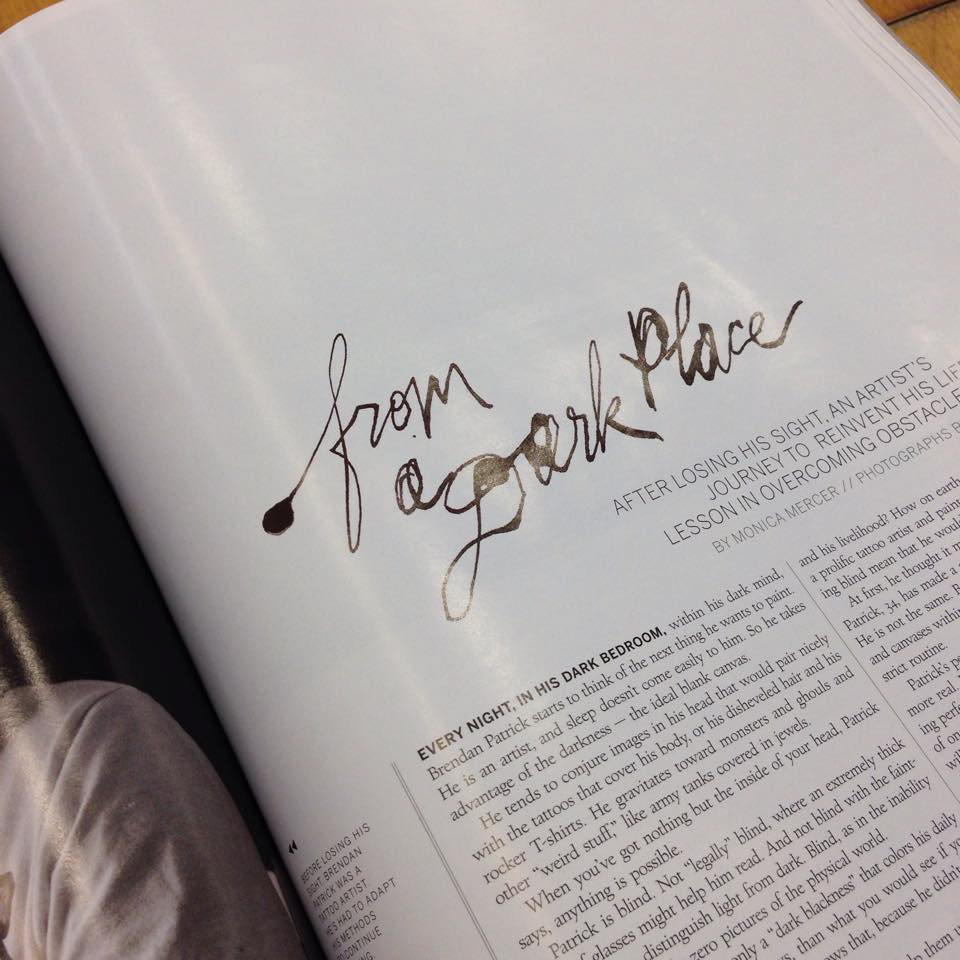 from
a Dark Place
AFTER LOSING HIS SIGHT, AN ARTIST'S
JOURNEY TO REINVENT HIS
LESSON IN OVERCOMING
BY MONICA MERCER // PHOTOGRAPHS
EVERY NIGHT, IN HIS DARK BEDROOM, within his dark mind,
Brendan Patrick starts to think of the next thing he wants to paint.
He is an artist, and sleep doesn't come easily to him. So he takes
advantage of the darkness — the ideal blank canvas.
He tends to conjure images in his head that would pair nicely
with the tattoos that cover his body, or his disheveled hair and his
rocker T-shirts. He gravitates toward monsters and ghouls and
other "weird stuff," like army tanks covered in jewels.
When you've got nothing but the inside of your head, Patrick
says, anything is possible.
Patrick is blind. Not "legally" blind, where an extremely thick
of glasses might help him read. And not blind with the faint-
distinguish light from dark. Blind, as in the inability
zero pictures of the physical world.
only a "dark blackness" that colors his daily
than what you would see if
that, because he
them
and his livelihood? How on
a prolific tattoo artist and
ing blind mean that he
At first, he thought it
Patrick, 34, has made a
He is not the same.
and canvases
strict routine.
Patrick's
more real.
ing
of
"
BEFORE LOSING HIS
SIGHT, BRENDAN
PATRICK WAS A
TATTOO ARTIST.
HE'S HAD TO ADAPT
HIS METHODS
TO CONTINUE